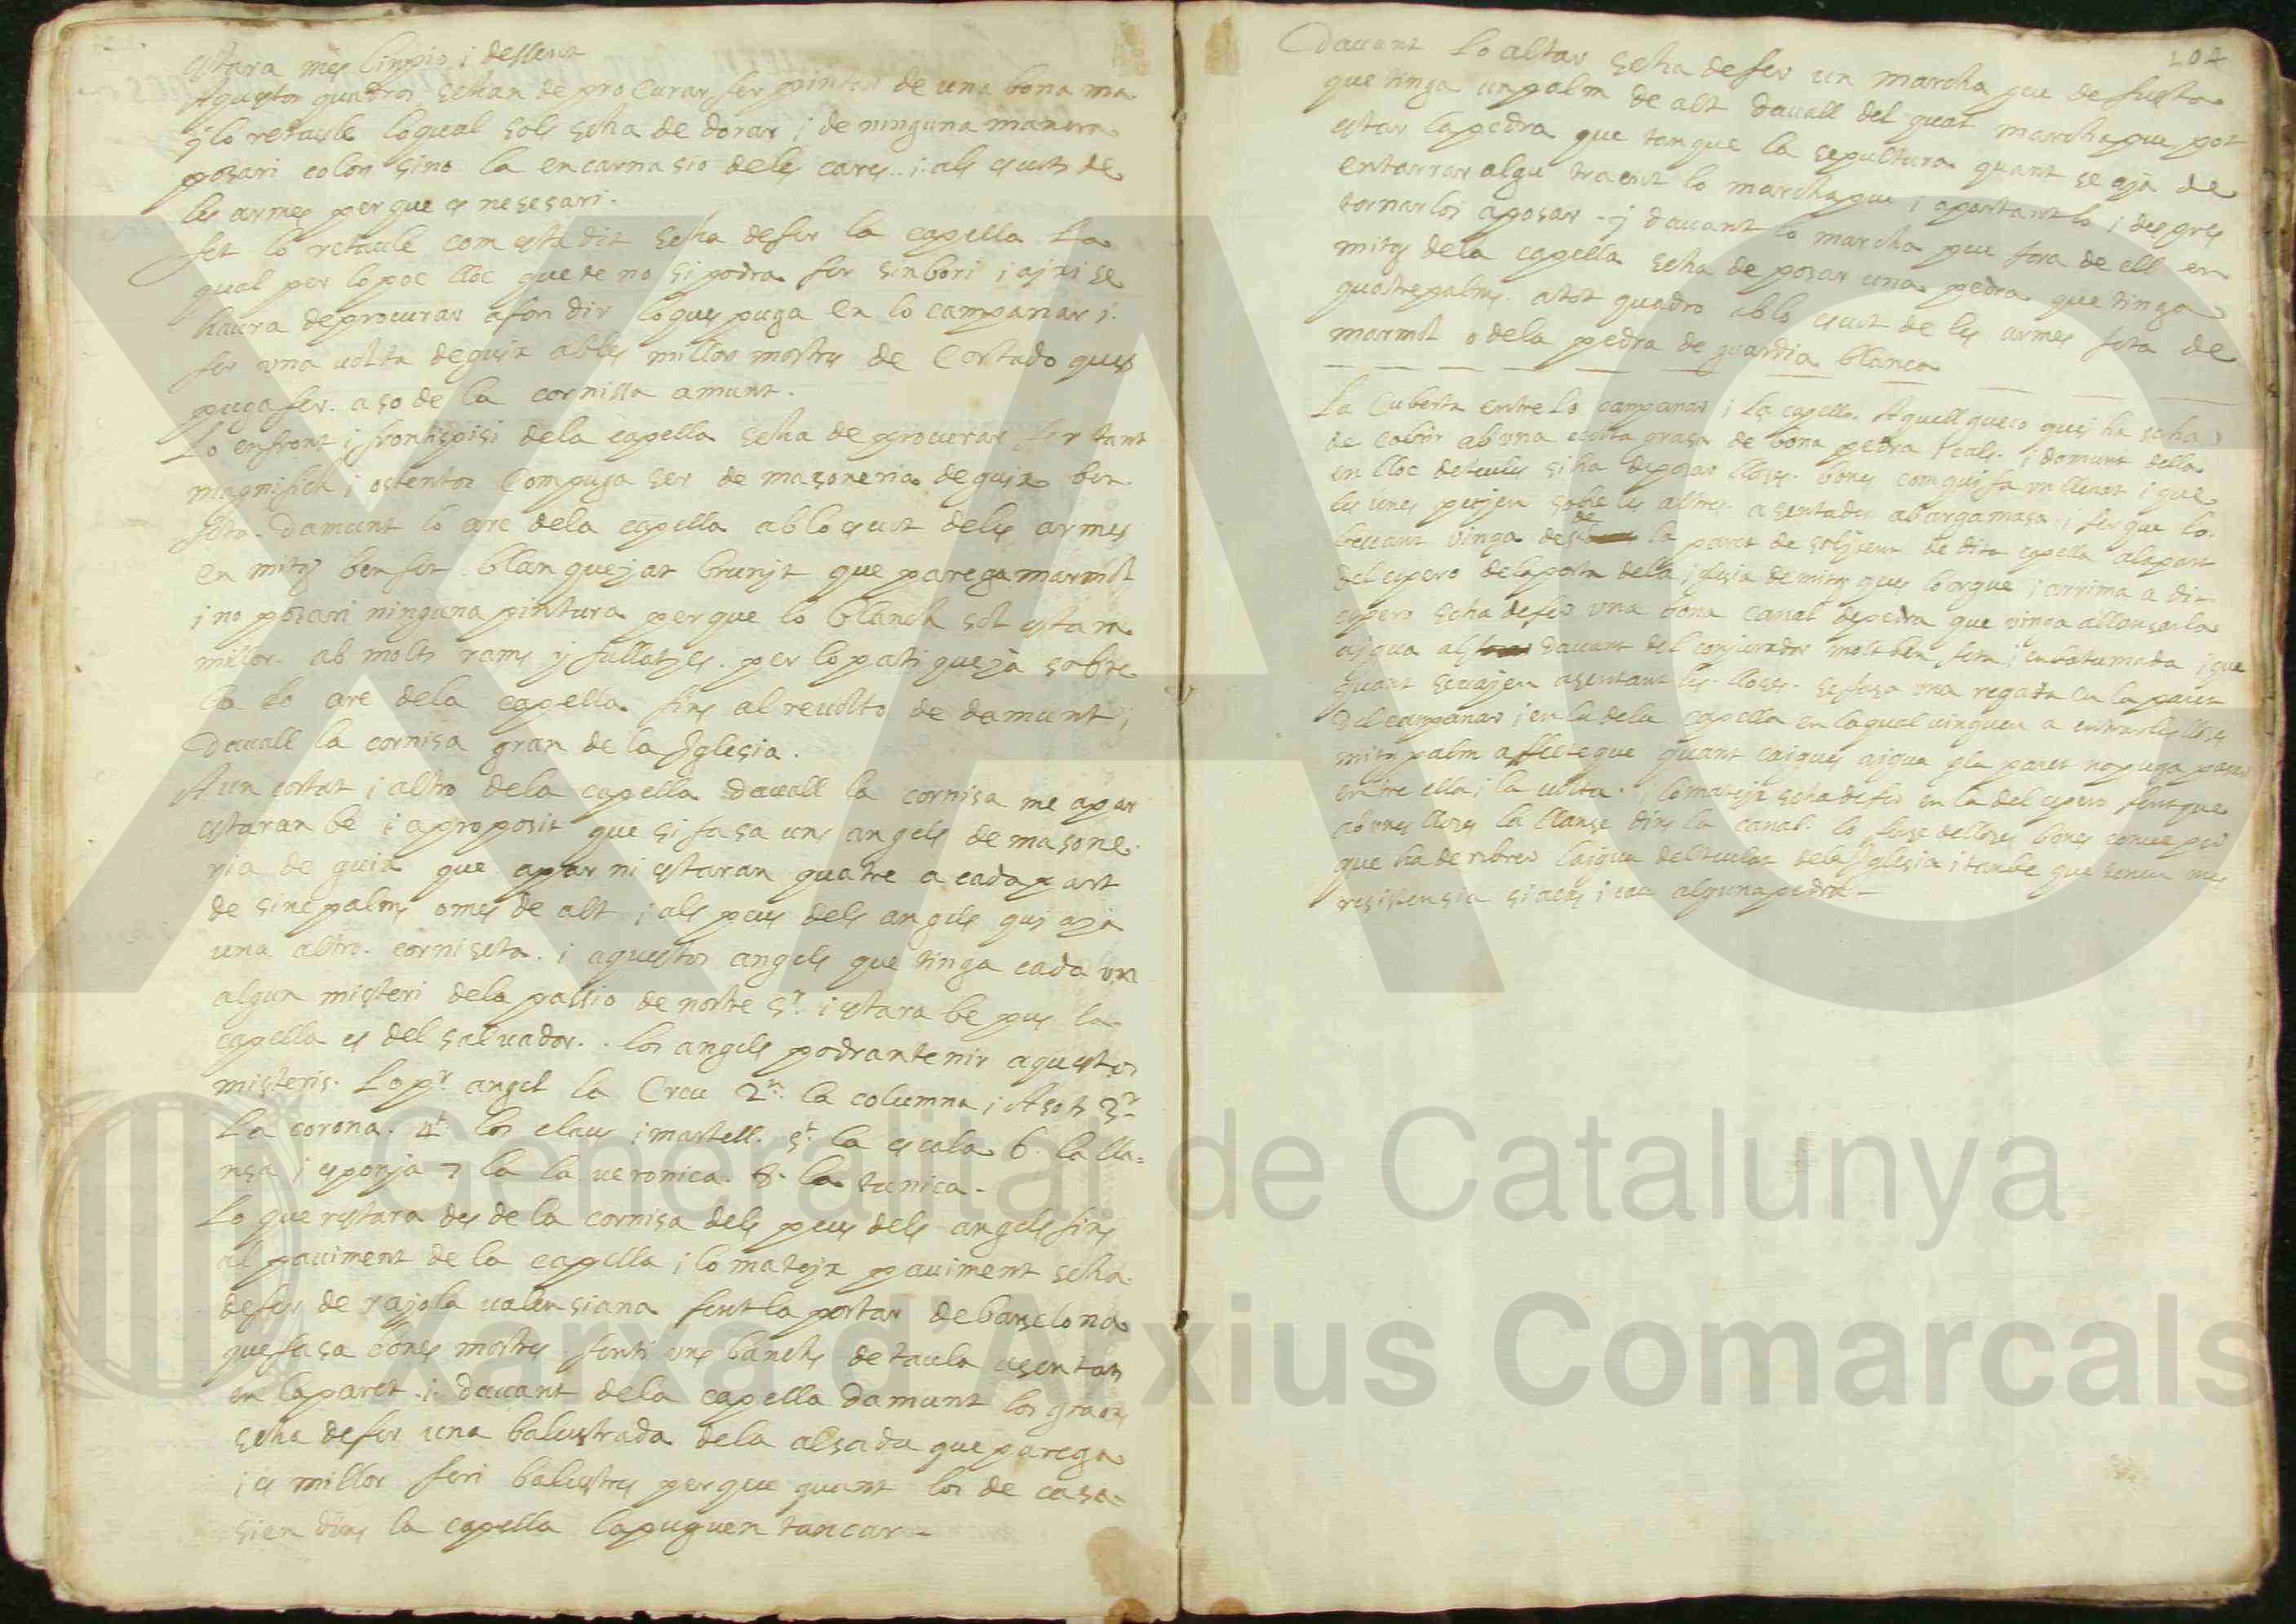 estara mes linpio i dessent
Aquestos quadros sehan de procurar fer pintar de una bona ma
y lo retaule loqual sols seha de dorar i de ninguna manera
posari colors sino la encarnasio deles cares i als escuts de
les armes perque es nesesari.
fet lo retaule com esta dit seha de fer la capella La
qual per lo poc lloc que te no si podra fer sinbori i axi se
haura de procurar afondir lo ques puga en lo campanar i
fer una volta de guix ab les millors mostres de Cortado ques
puga fer. aso de la cornissa amunt.
Lo enfront i frontispisi dela capella seha de procurar fer tant
magnifich i ostentos Com puga ser de masoneria de guix ben
feta. Damunt lo arc dela capella ab lo escut deles armes
en mitg ben fet. blanquejat brunyt que parega marmol
i no posari ninguna pintura perque lo blanch sol estar
millor. ab molts rams y fullatges. per lo pati que ja sobre
lo arc dela capella fins al revolto de damunt i
Davall la cornisa gran de la Iglesia.
A un costat i altro dela capella davall la cornisa me apar
estaran be i a proposit que si fasa uns angels de masone
ria de guix que apar ni estaran quatre a cada part
de sinc palms o mes de alt i als peus dels angels quey aja
una altra corniseta. i aquestos angels que tinga cada un
algun misteri dela passio de nostre Sr. i estara be pus la
capella es del salvador. los angels podran tenir aquestos
misteris. Lo pr. angel la Creu 2n. la columna i Asots 3r.
La corona. 4t. los claus i martell. 5t. la escala 6. la lla=
nsa i esponja 7 la la veronica. 8. la tunica.
Lo que restara des de la cornisa dels peus dels angels fins
al paviment de la capella i lo mateix paviment seha
de fer de rajola valensiana fent la portar de barselona
que fasa bones mostres. fent i uns banchs de taula asentats
en la paret. i davant dela capella damunt los graons
seha de fer una balustrada dela alsada que parega
i es millor fer i balustres perque quant los de casa
sien dins la capella la puguen tancar.
107
Davant Lo altar seha de fer un marchapeu de fusta
que tinga un palm de alt davall del qual marchapeu pot
estar la pedra que tanque la sepultura quant se aja de
entarrar algu traent lo marchapeu i apartantlo i despres
tornarlos a posar. y davant lo marchapeu fora de ell en
mitg dela capella seha de posar una pedra que tinga
quatre palms. a tot quadro ab lo escut de les armes feta de
marmol o dela pedra de guardia blanca
La Cuberta entre lo campanar i la capella. Aquell queco quey ha seha
de cobrir ab una volta grasa de bona pedra i cals. i damunt della
en lloc de teules si ha de posar lloses. bones com qui fa un llosat i que
les unes pugen sobre les altres. asentades ab argamasa i fer que lo
bessant vinga desde la paret de solixent de dita capella a la part
del espero dela porta dela iglesia de mitg ques lo orgue i arrima a dit
espero seha de fer una bona canal de pedra que vinga a llansar la
aigua al davant del conjurador molt ben feta i enbatumada i que
quant se vajen asentant les lloses. se fasa una regata en la paret
del campanar i en la dela capella en la qual vinguen a entrar les lloses
mitg palm a effecte que quant caigues aigua p la paret no puga pasar
entre ella i la volta. i lo mateix seha de fer en la del espero fent que
ab unes lloses la llanse dins la canal. lo fer se de lloses bones conve per
que ha de rebrer laigua del teulat dela Iglesia i tanbe que tenen mes
resistensia si acas i cau alguna pedra